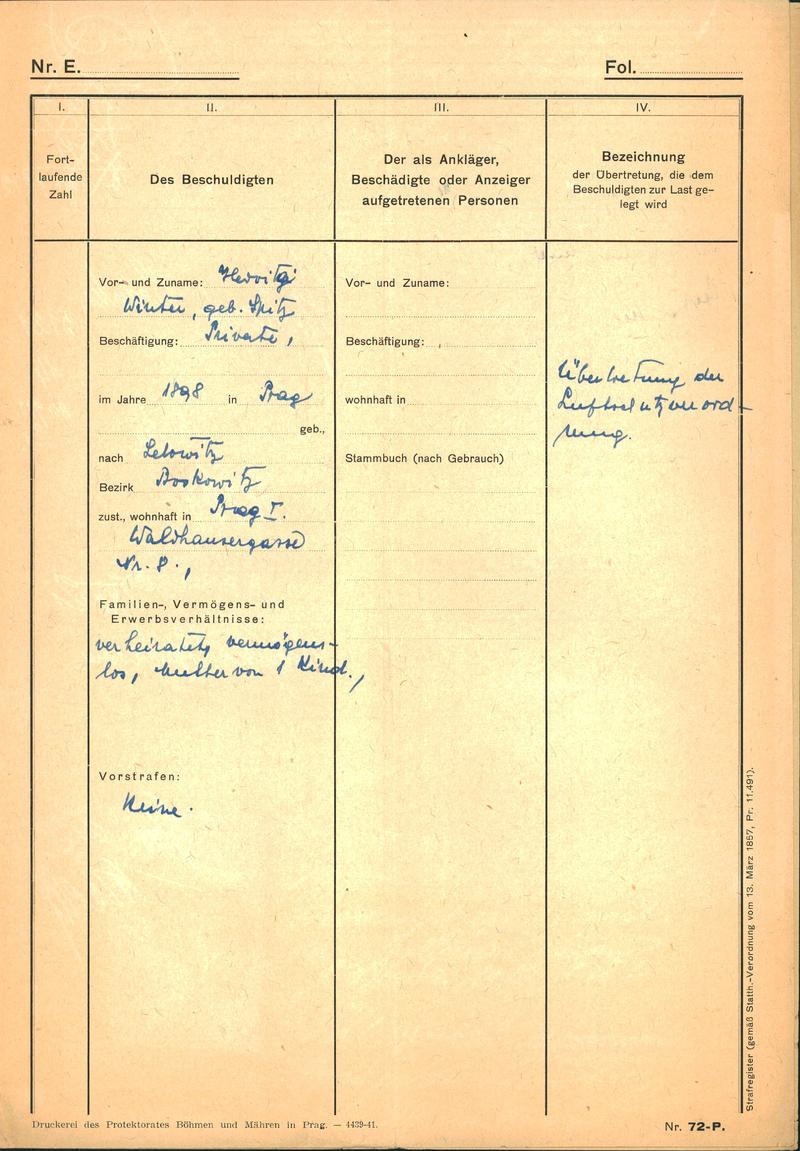 Nr. E.
Fol.
I.
II.
III.
IV.
Fort-
laufende
Zahl
Des Beschuldigten
Der als Ankläger,
Beschädigte oder Anzeiger
aufgetretenen Personen
Bezeichnung
der Übertretung, die dem
Beschuldigten zur Last ge-
legt wird
Vor- und Zuname:
Winter, geb. Spitz
Beschäftigung: Private,
im Jahre 1898 in Prag
geb.,
nach Letowitz
Bezirk Boskowitz
zust., wohnhaft in Prag I.
Waldhausergasse
Nr. 8.,
Familien-, Vermögens- und
Erwerbsverhältnisse:
verheiratet, vermögens-
los, Mutter von 1 Kind.,
Vorstrafen:
Keine.
Vor- und Zuname:
Beschäftigung:
wohnhaft in
Stammbuch (nach Gebrauch)
Übertretung der
Luftschutzverord-
nung.
Strafregister (gemäß Statth.-Verordnung vom 13. März 1857, Pr. 11.491).
Druckerei des Protektorates Böhmen und Mähren in Prag. — 4439-41.
Nr. 72-P.